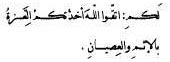 لَكُمْ: اتَّقُوا اللّٰهَ أَخَذَتْكُمُ الْعِزَّةُ
بِالْإِثْمِ وَالْعِصْيَانِ .